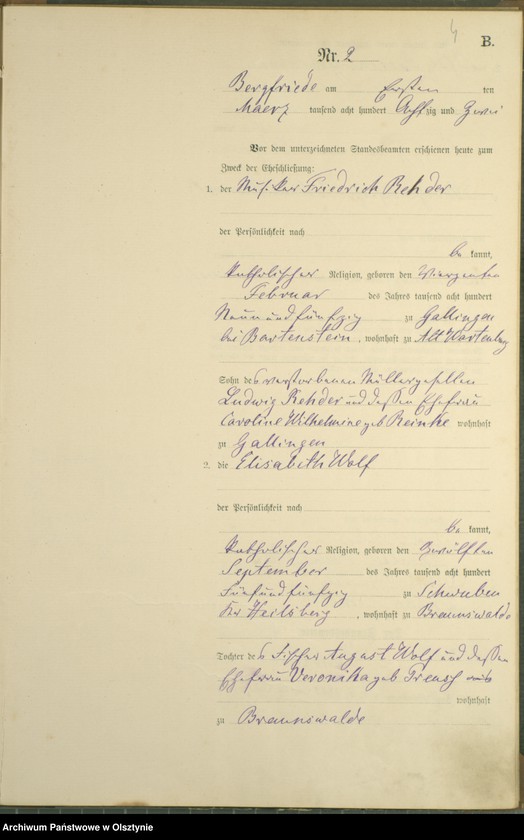 B.
Nr. 2
Bergfriede am Ersten ten
Maerz tausend acht hundert Achtzig und Zwei
Vor dem unterzeichneten Standesbeamten erschienen heute zum
Zweck der Eheschließung:
1. der Musiker Friedrich Rehder
der Persönlichkeit nach
be kannt,
katholischer Religion, geboren den Vierzenten
Februar des Jahres tausend acht hundert
Neunundfünfzig zu Gallingen
bei Bartenstein, wohnhaft zu Alt Wartenburg
Sohn des verstorbenen Müllergesellen
Ludwig Rehder und dessen Ehefrau
Caroline Wilhelmine geb Reinke wohnhaft
zu Gallingen
2. die Elisabeth Wolf
der Persönlichkeit nach
be kannt,
katholischer Religion, geboren den Zwölften
September des Jahres tausend acht hundert
Fünfundfünfzig zu Schwuben
Kr Heilsberg, wohnhaft zu Braunswalde
Tochter des Fischer August Wolf und dessen
Ehefrau Veronika geb
wohnhaft
zu Braunswalde
Archiwum Państwowe w Olsztynie